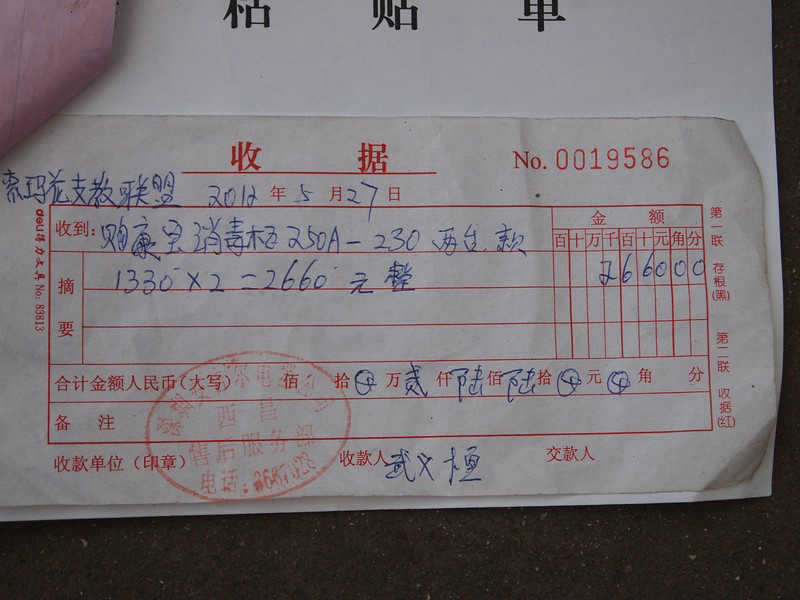 粘贴单
收据
No. 0019586
索玛花支教联盟 2012年5月27日
收到: 购康宝消毒柜250A-230 两台款
金额
百十万千百十元角分
摘要
1330×2=2660元整
266000
合计金额人民币(大写) 佰 拾 万贰仟陆佰陆拾 元 角 分
备注
西昌
售后服务部
电话:
收款单位(印章) 收款人 武义恒 交款人
deli得力文具 No: 83813
第一联 存根(黑)
第二联 收据(红)